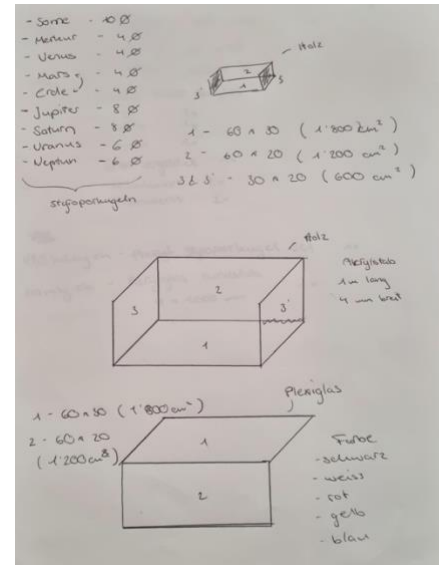 - Sonne - 10 Ø
- Merkur - 4 Ø
- Venus - 4 Ø
- Mars - 4 Ø
- Erde - 4 Ø
- Jupiter - 8 Ø
- Saturn - 8 Ø
- Uranus - 6 Ø
- Neptun - 6 Ø
Styroporkugeln
Holz
2
3'
3
1
1 - 60 x 30 (1'800 cm²)
2 - 60 x 20 (1'200 cm²)
3 & 3' - 30 x 20 (600 cm²)
Holz
Acrylstab
1m lang
4 mm breit
2
3
3'
1
1 - 60 x 30 (1'800 cm²)
2 - 60 x 20
(1'200 cm²)
Plexiglas
1
2
Farbe
- schwarz
- weiss
- rot
- gelb
- blau